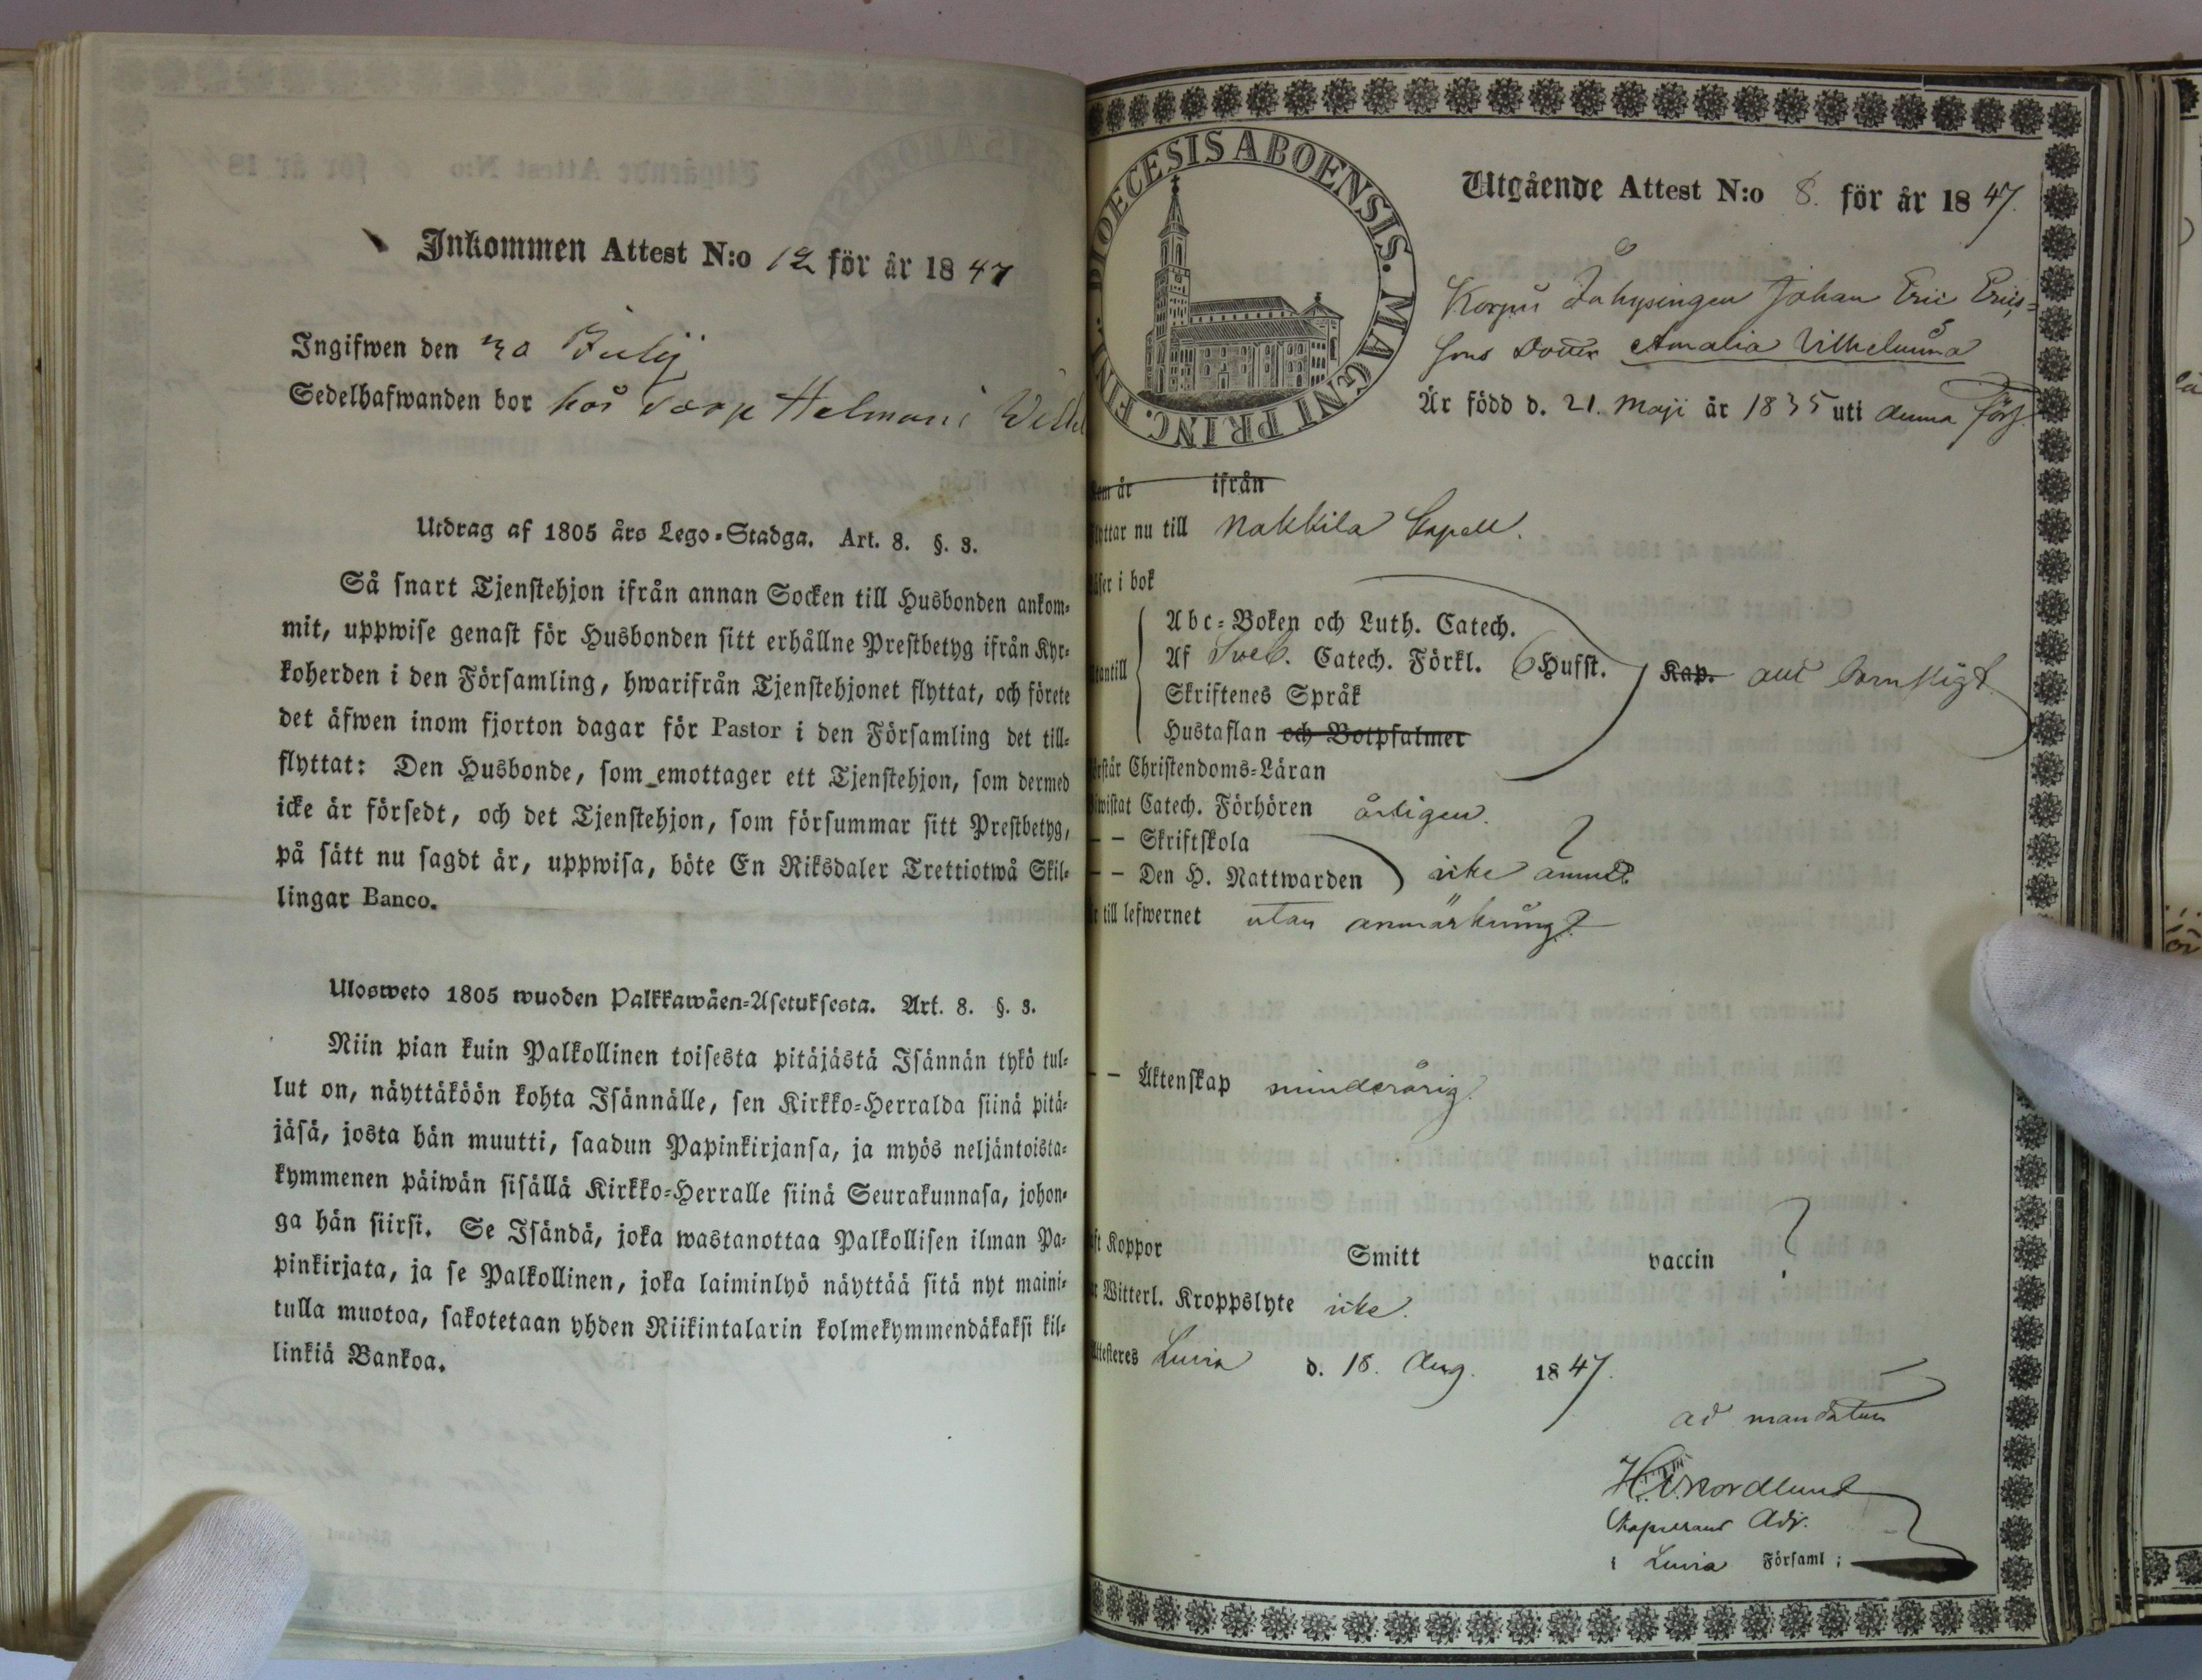 Inkommen Attest N:o 12 för år 1847
Ingifwen den 30 Julij
Sedelhafwanden bor hos Torp Helmani
Utdrag af 1805 års Lego-Stadga. Art. 8. §. 3.
Så snart Tjenstehjon ifrån annan Socken till Husbonden ankom-
mit, uppwise genast för Husbonden sitt erhållne Prestbetyg ifrån Kyr-
koherden i den Församling, hwarifrån Tjenstehjonet flyttat, och förete
det äfwen inom fjorton dagar för Pastor i den Församling det till-
flyttat: Den Husbonde, som emottager ett Tjenstehjon, som dermed
icke är försedt, och det Tjenstehjon, som försummar sitt Prestbetyg,
på sätt nu sagdt är, uppwisa, böte En Riksdaler Trettiotwå Skil-
lingar Banco.
Ulosweto 1805 wuoden Palkkawäen-Asetuksesta. Art. 8. §. 3.
Niin pian kuin Palkollinen toisesta pitäjästä Isännän tykö tul-
lut on, näyttäköön kohta Isännälle, sen Kirkko-Herralda siinä pitä-
jäsä, josta hän muutti, saadun Papinkirjansa, ja myös neljäntoista-
kymmenen päiwän sisällä Kirkko-Herralle siinä Seurakunnasa, johon-
ga hän siirsi. Se Isändä, joka wastanottaa Palkollisen ilman Pa-
pinkirjata, ja se Palkollinen, joka laiminlyö näyttää sitä nyt maini-
tulla muotoa, sakotetaan yhden Riikintalarin kolmekymmendäkaksi kil-
linkiä Bankoa.
DIOECESIS ABOENSIS. MAGNI PRINC. FINL.
Utgående Attest N:o 8. för år 1847.
Johan Eric Erics-
sons Dotter Amalia Vilhelmina
Är född d. 21. Maji år 1835 uti denna Förs.
som är ifrån
flyttar nu till Nakkila Capell.
läser i bok
Abc-Boken och Luth. Catech.
utantill Af Sveb. Catech. Förkl. 6 Hufst. Kap. allt barnsligt
Skriftenes Språk
Hustaflan och Botpsalmer
förstår Christendoms-Läran
biwistat Catech. Förhören årligen.
— — Skriftskola
— — Den H. Nattwarden icke ännu
är till lefwernet utan anmärkning
— — Äktenskap minderårig.
haft Koppor Smitt vaccin ?
har Witterl. Kroppslyte icke.
Attesteres Luvia d. 18. Aug. 1847.
ad mandatum
Nordlund
Adj.
i Luvia Församl ;